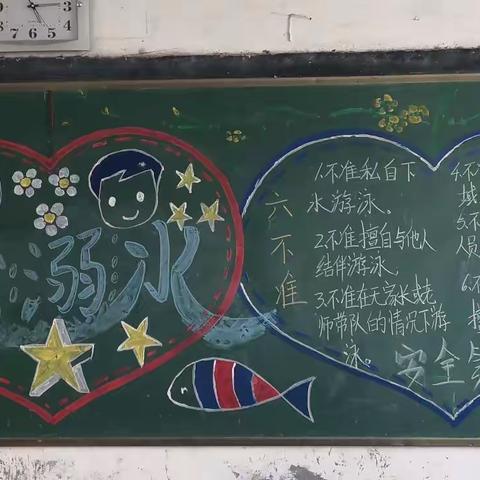 溺水
六不准
1.不准私自下
水游泳。
2.不准擅自与他人
结伴游泳。
3.不准在无家长或老
师带队的情况下游
泳。
4.不
域
5.不
人员
6.不
擅
安全